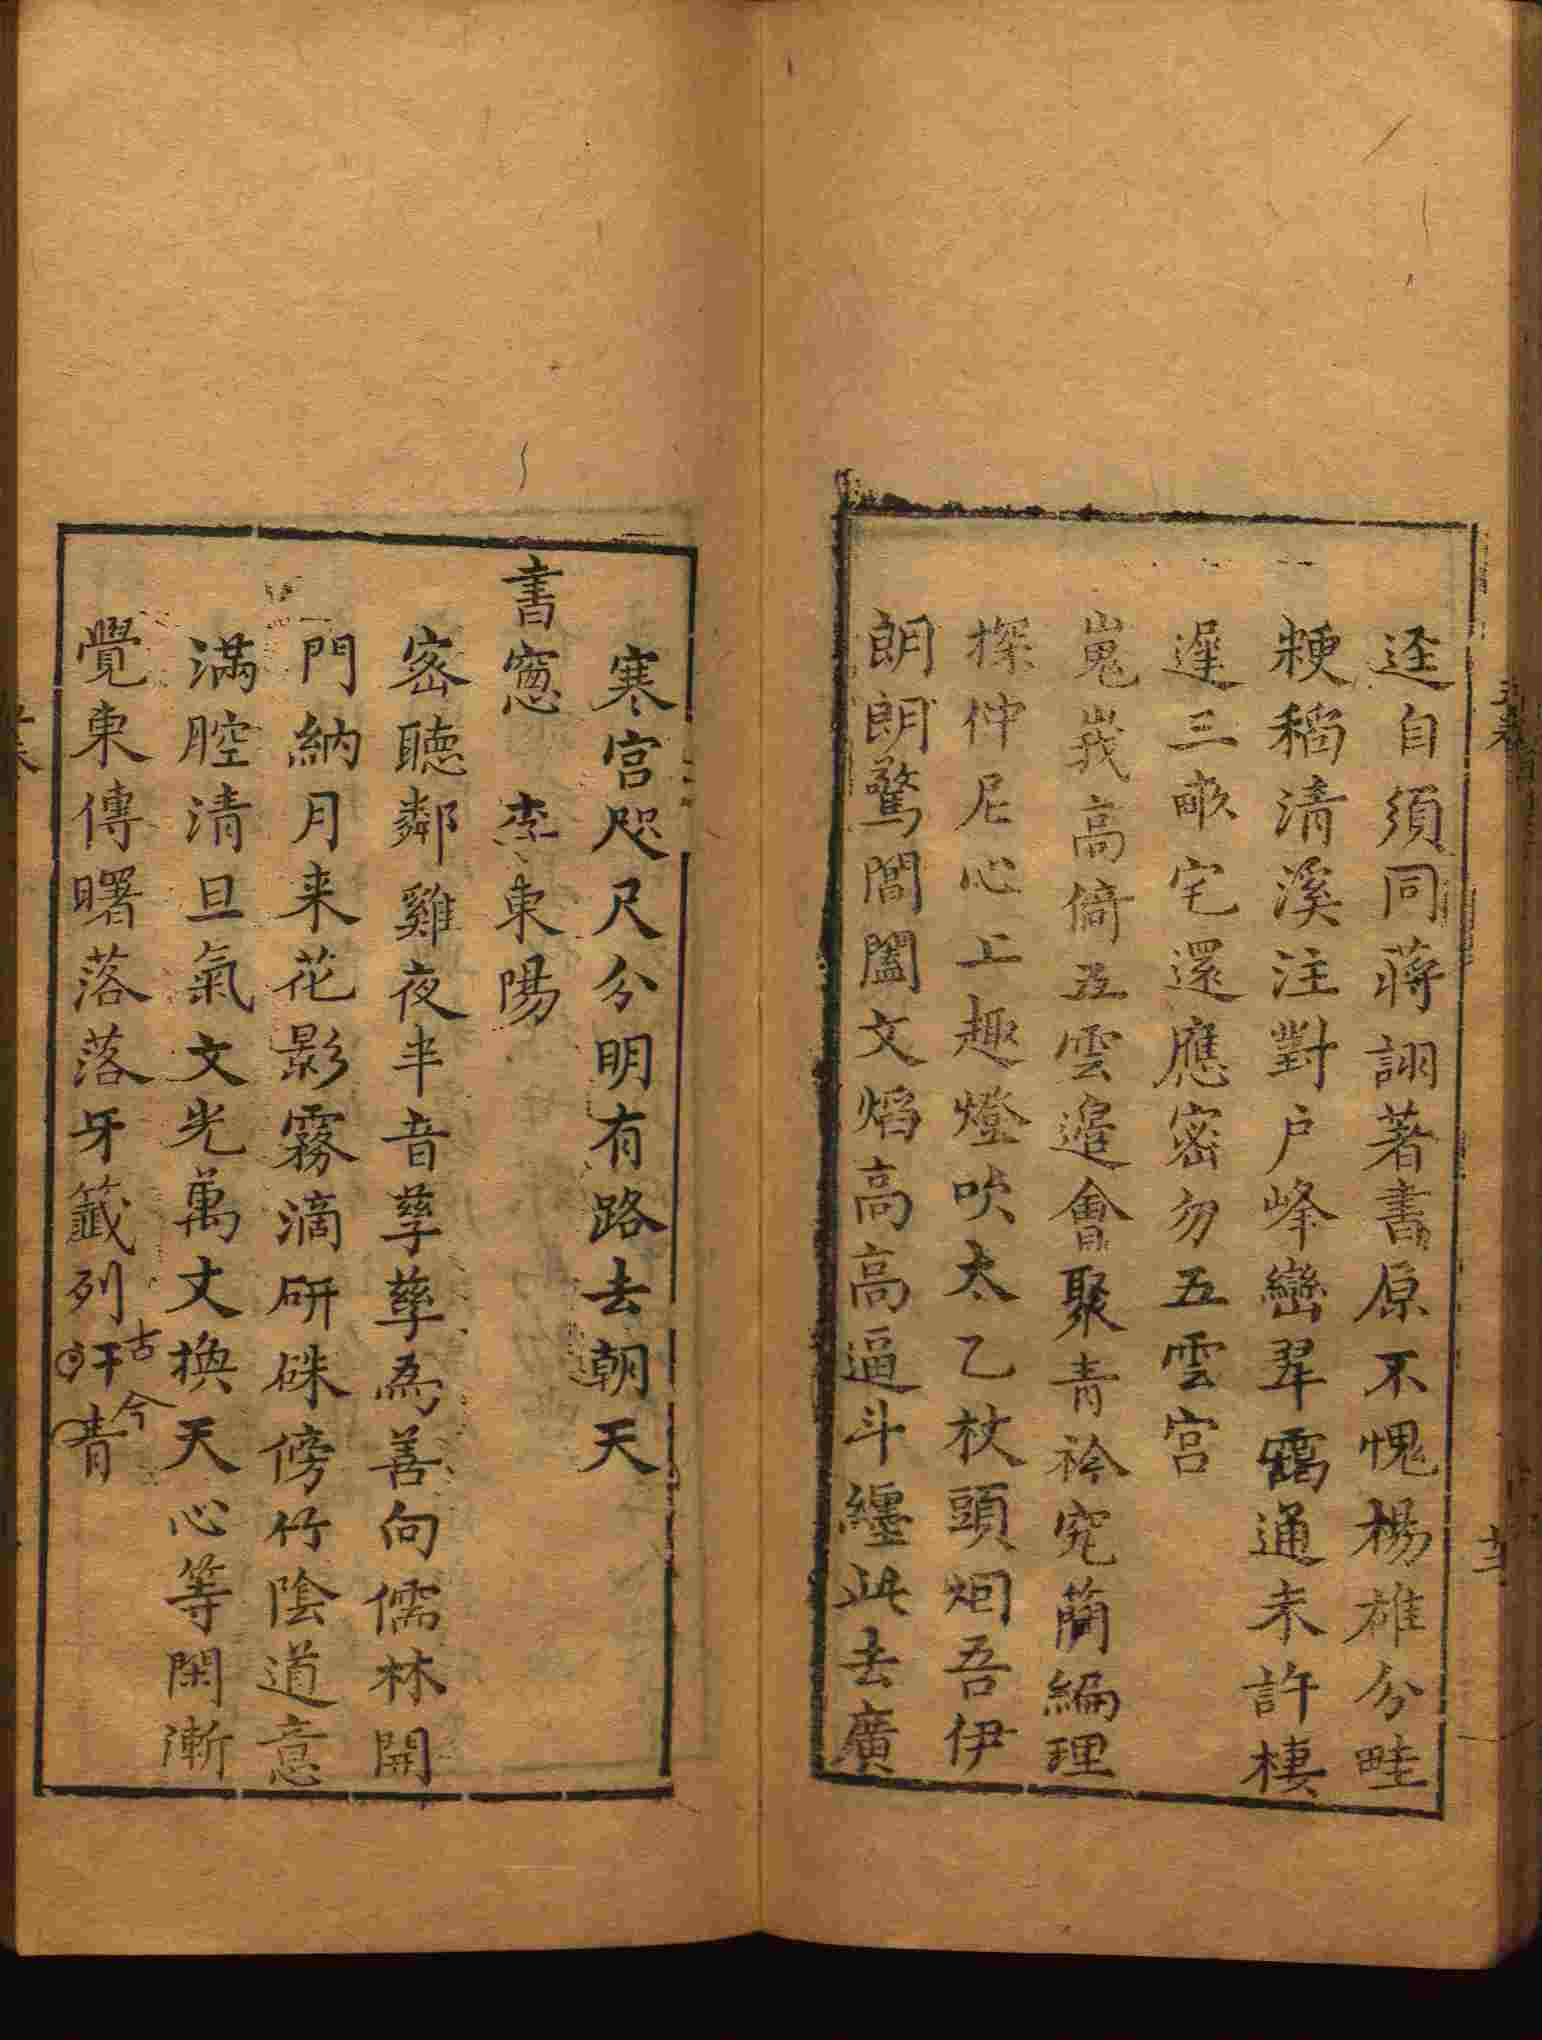 逕自須同蔣詡著書原不愧楊雄分畦
粳稻清溪注對户峰巒翠靄通未許棲
遲三畝宅還應密勿五雲宮
嵬峩高倚五雲邉會聚青衿究簡編理
探仲尼心上趣燈吹太乙杖頭烟吾伊
朗朗驚閶闔文焰高高逼斗纏此去廣
寒宫咫尺分明有路去朝天
書窻 李東陽
密聴鄰雞夜半音孳孳為善向儒林開
門納月来花影霧滴研硃傍竹陰道意
滿腔清旦氣文光萬丈換天心等閑漸
覺東傳曙落落牙籤列汗青
古今